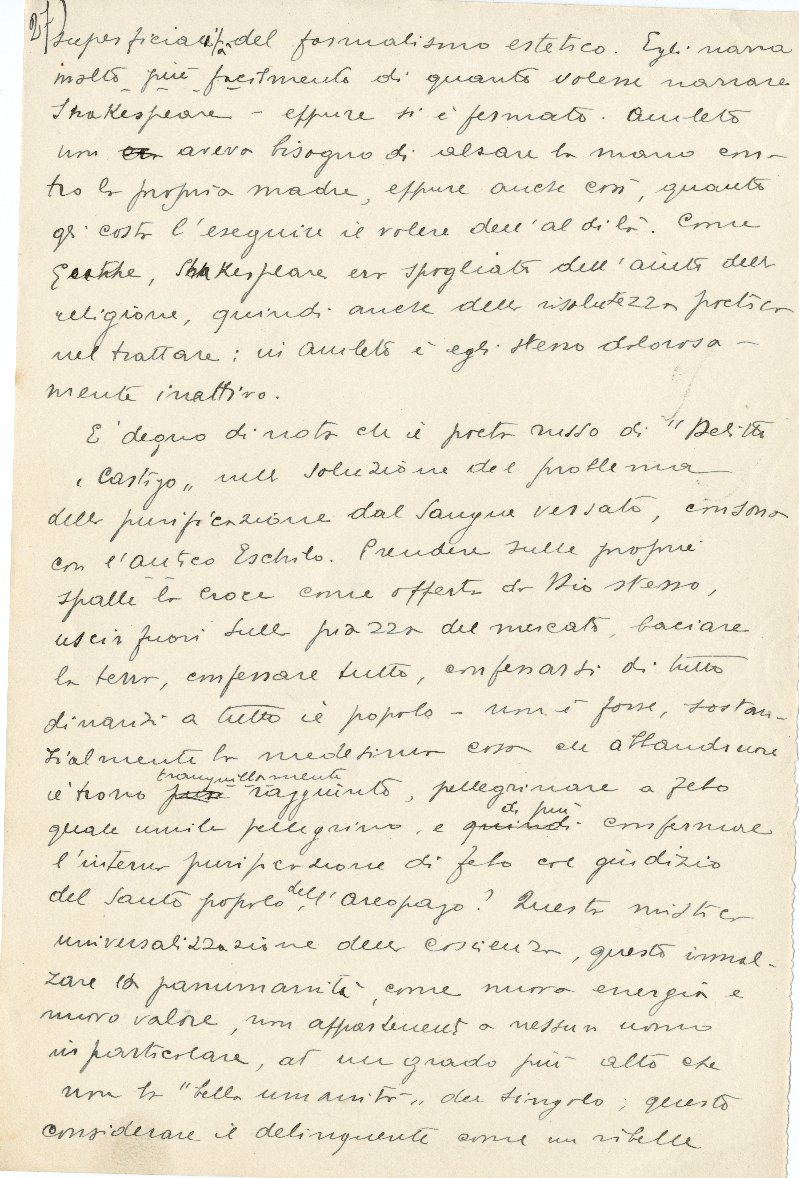 27)
superficialità del formalismo estetico. Egli narra
molto più facilmente di quanto volesse narrare
Shakespeare – eppure si è fermato. Amleto
non aveva bisogno di alzare la mano con-
tro la propria madre, eppure anche così, quanto
gli costa l'eseguire il volere dell'al di là. Come
Goethe, Shakespeare era spogliato dell'aiuto della
religione, quindi anche della risolutezza poetica
nel trattare: in Amleto è egli stesso dolorosa-
mente inattivo.
E' degno di nota che il poeta russo di "Delitto
e Castigo„ nella soluzione del problema
della purificazione dal sangue versato, consona
con l'antico Eschilo. Prendere sulle proprie
spalle la croce come offerta da Dio stesso,
uscir fuori sulla piazza del mercato, baciare
la terra, confessare tutto, confessarsi di tutto
dinanzi a tutto il popolo – non è forse, sostan-
zialmente la medesima cosa che abbandonare
il trono tranquillamente raggiunto, pellegrinare a Febo
quale umile pellegrino, e di più confermare
l'interna purificazione di Febo col giudizio
del Santo popolo dell'Areopago? Questa mistica
universalizzazione della coscienza, questo innal-
zare la panumanità, come nuova energia e
nuovo valore, non appartenente a nessun uomo
in particolare, ad un grado più alto che
non la "bella umanità„ del singolo; questo
considerare il delinquente come un ribelle